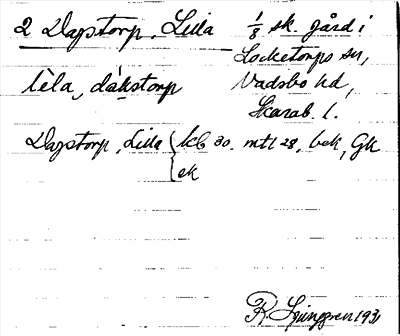 2 Dagstorp, Lilla 1/8 sk. gård i
Locketorps sn,
lèla, dàkstorp Vadsbo hd,
Skarab. l.
Dagstorp, Lilla { kb 30. mtl 28, bok, GK
ek
R. Ljunggren 1931